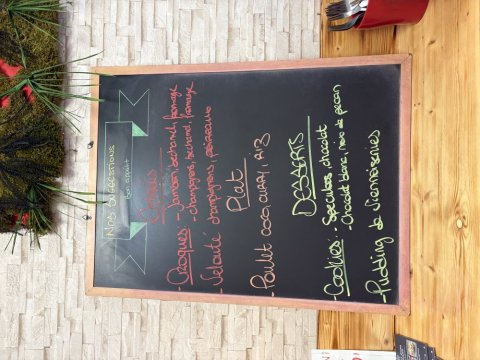 NOS SUGGESTIONS
bon appétit
- Croques : - Jambon, bechamel, fromage
- champignons, bechamel, fromage
- Velouté champignons, poireaux
Plat
- Poulet coco, curry, riz
DESSERTS
- Cookies : - Speculoos, chocolat
- Chocolat blanc, noix de pecan
- Pudding de viennoiseries